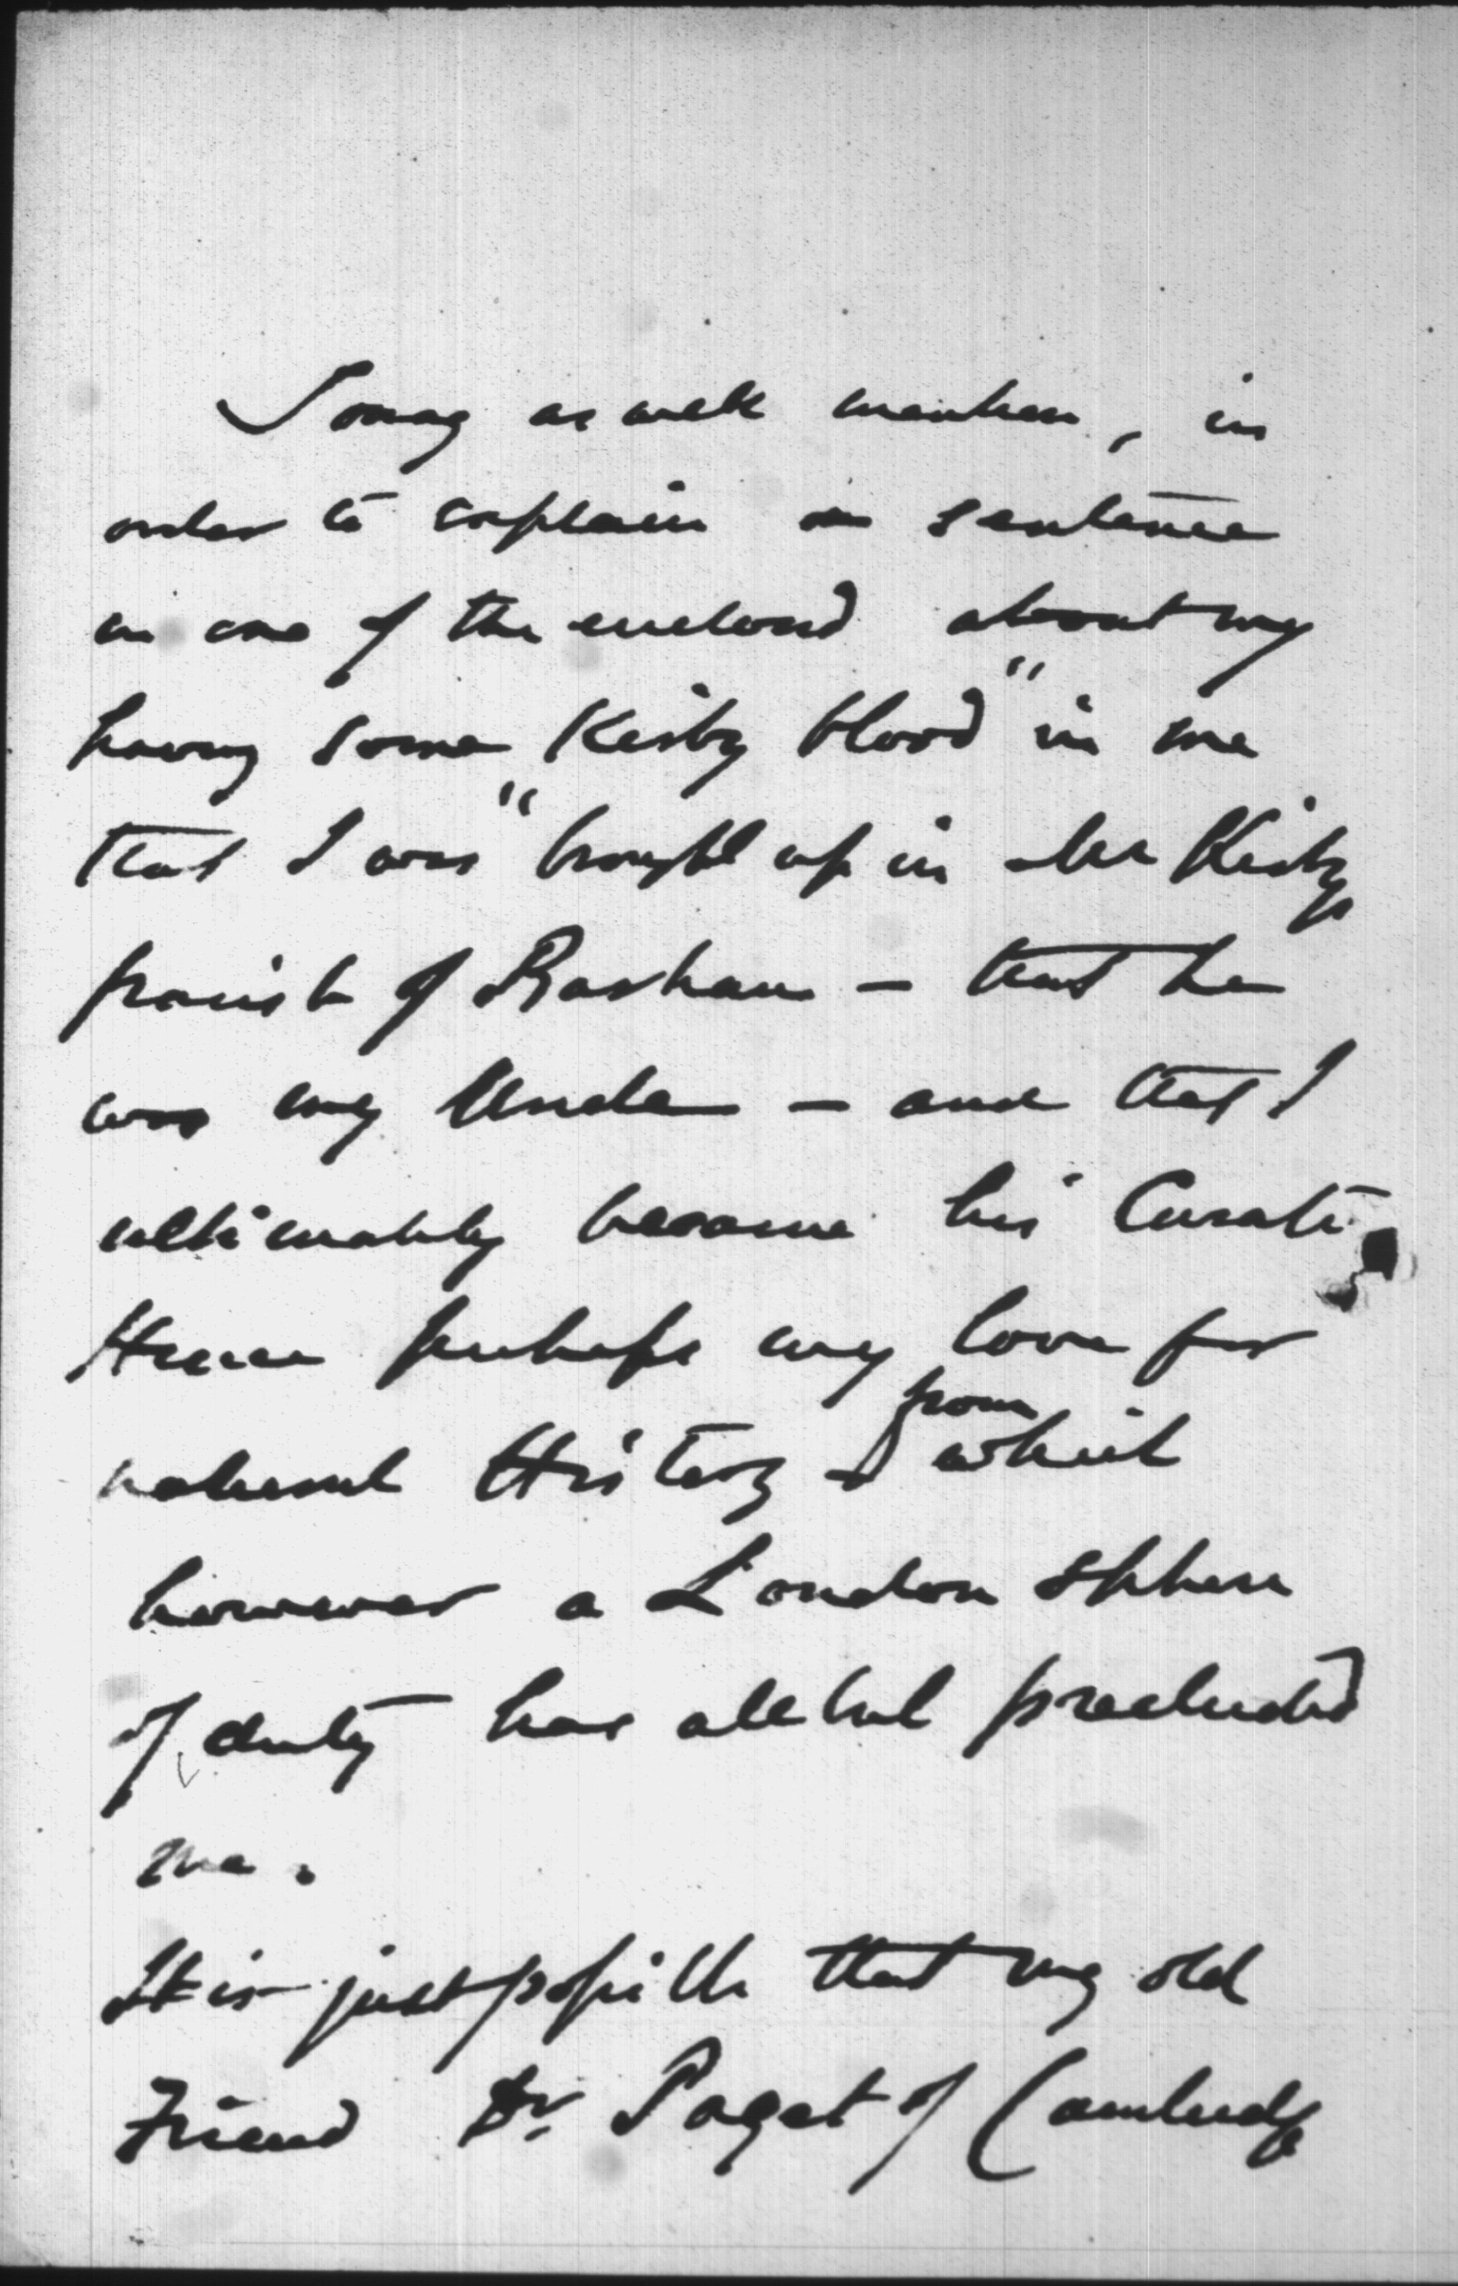 I may as well mention, in
order to explain a sentence
in one of the enclosed about my
having some "Kirby blood" in me
that I was brought up in Mr Kirbys
parish of Barham – that he
was my Uncle – and that I
ultimately became his Curate.
Hence perhaps my love for
natural History & from which
however a London sphere
of duty has all but precluded
me.
It is just possible that my old
Friend Dr. Paget of Cambridge